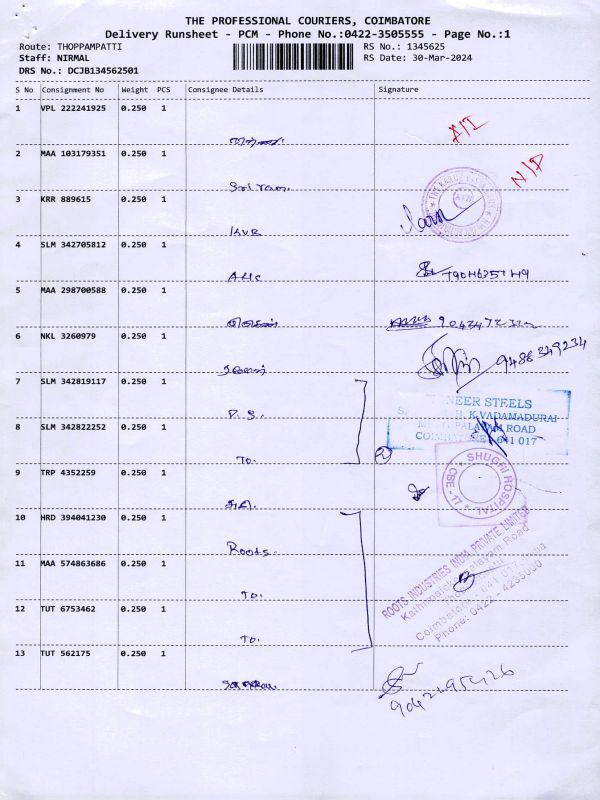 THE PROFESSIONAL COURIERS, COIMBATORE
Delivery Runsheet - PCM - Phone No.:0422-3505555 - Page No.:1
Route: THOPPAMPATTI
RS No.: 1345625
Staff: NIRMAL
RS Date: 30-Mar-2024
DRS No.: DCJB134562501
S No Consignment No Weight PCS Consignee Details Signature
1 VPL 222241925 0.250 1
2 MAA 103179351 0.250 1
Sri Ram.
3 KRR 889615 0.250 1
KVR
4 SLM 342705812 0.250 1
5 MAA 298700588 0.250 1
6 NKL 3260979 0.250 1
9486349234
7 SLM 342819117 0.250 1
P.S.
NEER STEELS
K.VADAMADURAI
8 SLM 342822252 0.250 1
ROAD
641 017
To.
2
9 TRP 4352259 0.250 1
SHUGHI HOSPITAL
CBE - 17
10 HRD 394041230 0.250 1
Roots.
ROOTS INDUSTRIES INDIA PRIVATE LIMITED
11 MAA 574863686 0.250 1
To.
Phone: 0422 - 4235000
12 TUT 6753462 0.250 1
To.
13 TUT 562175 0.250 1